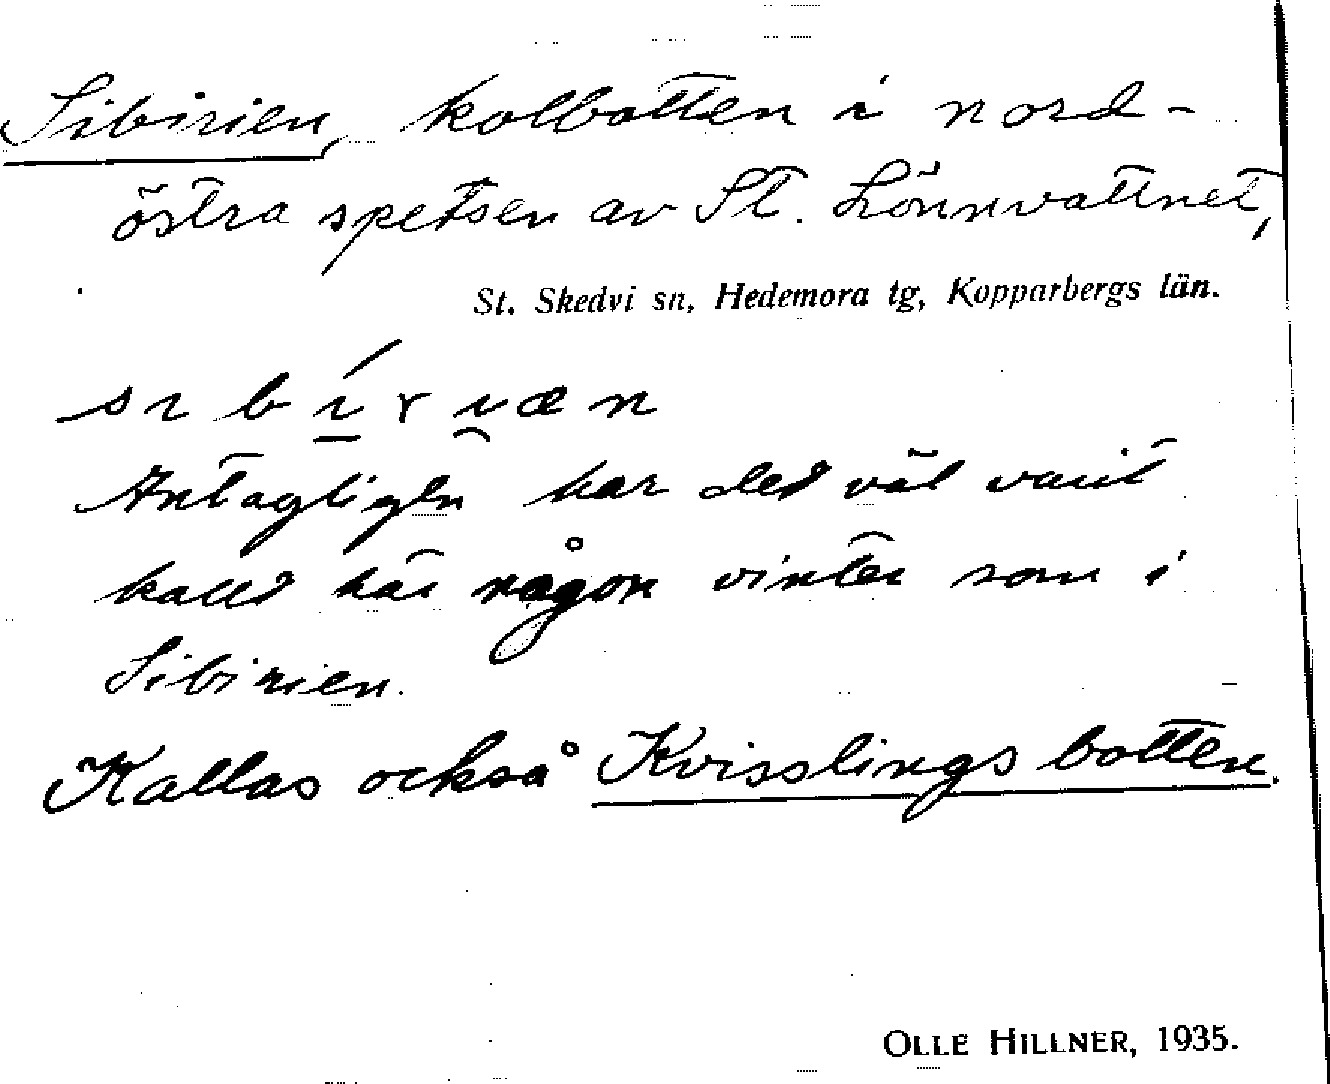 Sibirien, kolbotten i nord-
östra spetsen av St. Lönnvattnet,
St. Skedvi sn, Hedemora tg, Kopparbergs län.
Antagligen har det väl varit
kallt här någon vinter som i
Sibirien.
Kallas också Kvisslingsbotten.
OLLE HILLNER, 1935.